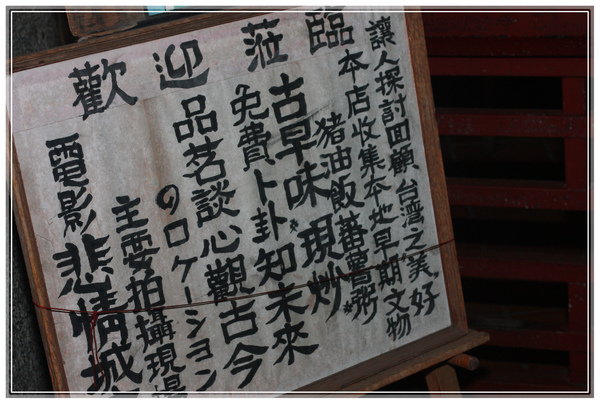 歡迎莅臨
讓人探討回顧、台湾之美、好
本店收集本地早期文物
猪油飯蕃薯粥*
古早味*現炒
免費卜卦知未來
品茗談心觀古今
のロケーション
主要拍攝現場
電影悲情城